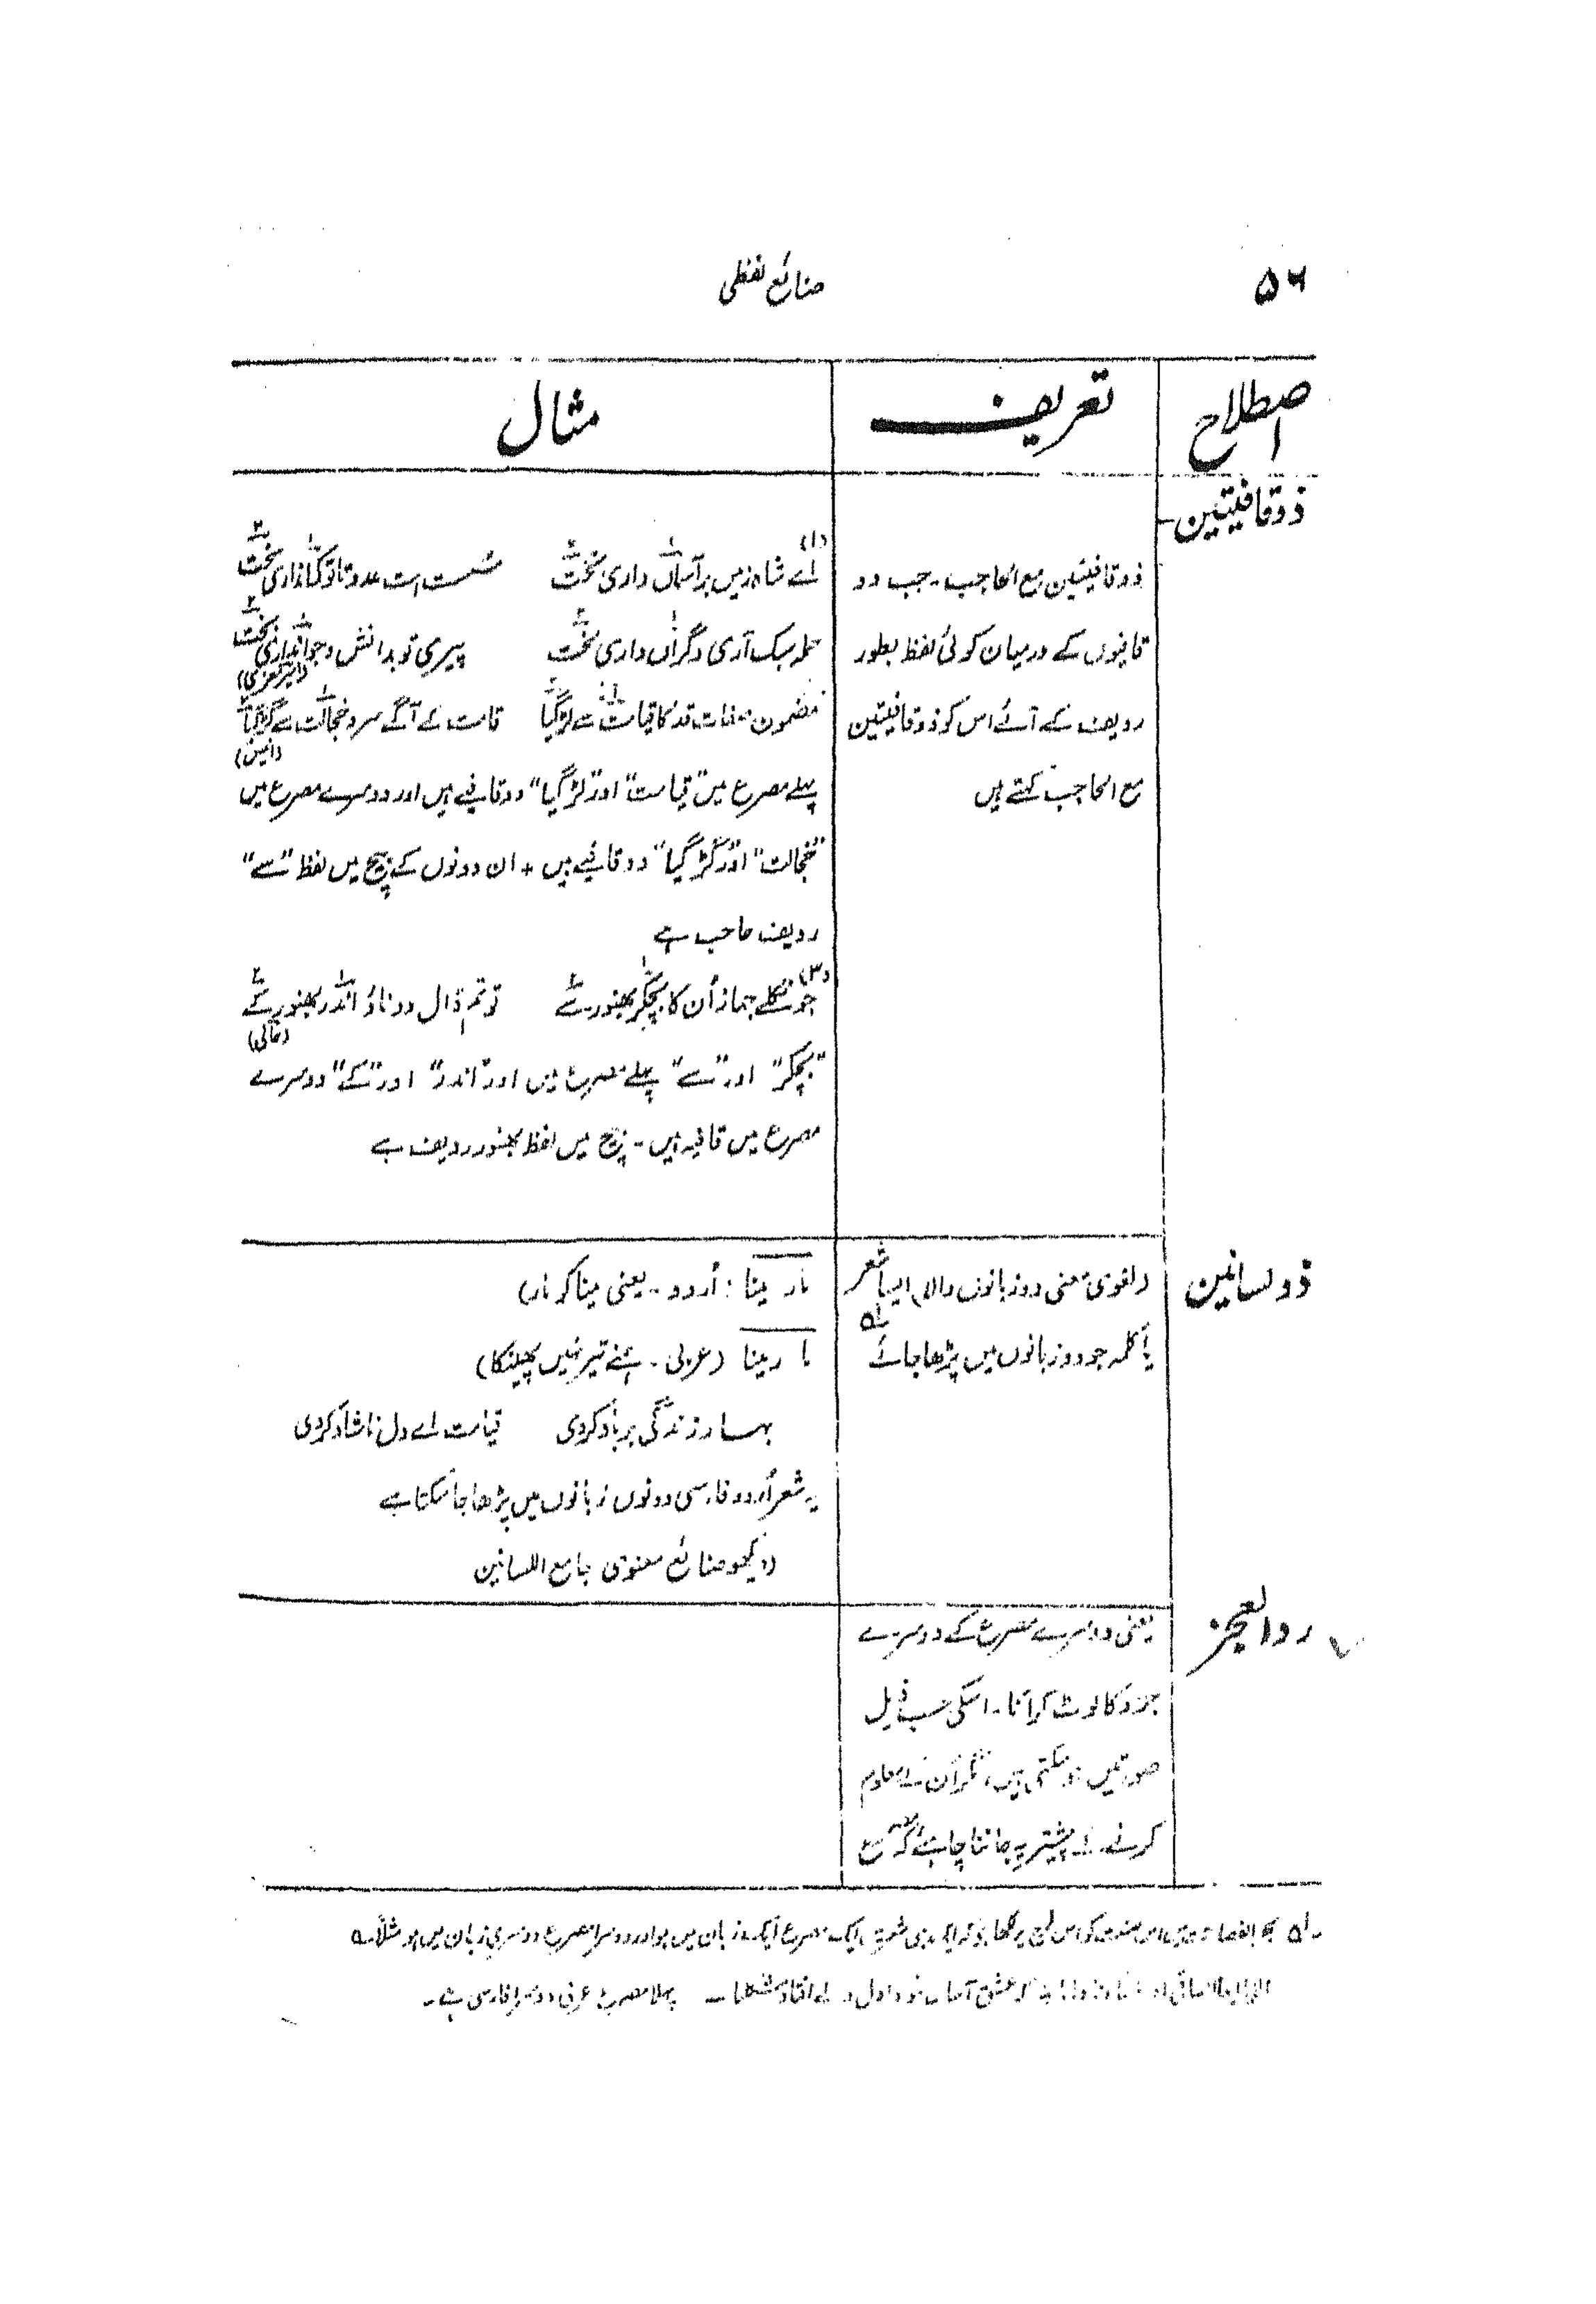 ۵۶
صنائع لفظی
اصطلاح
تعریف
مثال
ذوقافیتین
ذوقافیتین مع الحاجب۔ جب دو
قافیوں کے درمیان کوئی لفظ بطور
ردیف کے آئے اس کو ذوقافیتین
مع الحاجب کہتے ہیں
(۱)
اے شاہ زمیں بر آسماں داری تخت سست است عدو تا تو کماں داری سخت
حملہ سبک آری و گراں داری لخت پیری تو بدانش و جواں داری بخت
(امیر معزی)
مضمون صفات قد کا قیامت سے لڑ گیا قامت کے آگے سرو خجالت سے گڑ گیا
(انیس)
پہلے مصرع میں "قیامت" اور "لڑ گیا" دو قافیے ہیں اور دوسرے مصرع میں
"خجالت" اور "گڑ گیا" دو قافیے ہیں + ان دونوں کے بیچ میں لفظ "سے"
ردیف حاجب ہے
(۳)
جو نکلے جہاز اُن کا بچکر بھنور سے تو تم ڈال دو ناؤ اندر بھنور کے
(حالی)
"بچکر" اور "سے" پہلے مصرع میں اور "اندر" اور "کے" دوسرے
مصرع میں قافیہ ہیں۔ بیچ میں لفظ بھنور ردیف ہے
ذولسانین
(لغوی معنی دو زبانوں والا) ایسا شعر
یا کلمہ جو دو زبانوں میں پڑھا جائے
مار مینا : اُردو۔ یعنی مینا کو مار)
ما رمینا (عربی۔ ہمنے تیر نہیں پھینکا)
بہار زندگی برباد کردی قیامت اے دل ناشاد کردی
یہ شعر اُردو فارسی دونوں زبانوں میں پڑھا جا سکتا ہے
(دیکھو صنائع معنوی جامع اللسانین
ردالعجز
یعنی دوسرے مصرع کے دوسرے
جزو کا لوٹ کر آنا۔ اسکی حسب ذیل
صورتیں ہو سکتی ہیں، مگر اُن کے معلوم
کرنے سے پیشتر یہ جاننا چاہئے کہ
ایک مصرع ایک زبان میں ہو اور دوسرا مصرع دوسری زبان میں ہو مثلاً
کہ عشق آساں نمود اول ولے افتاد مشکلہا۔ پہلا مصرع عربی دوسرا فارسی ہے۔